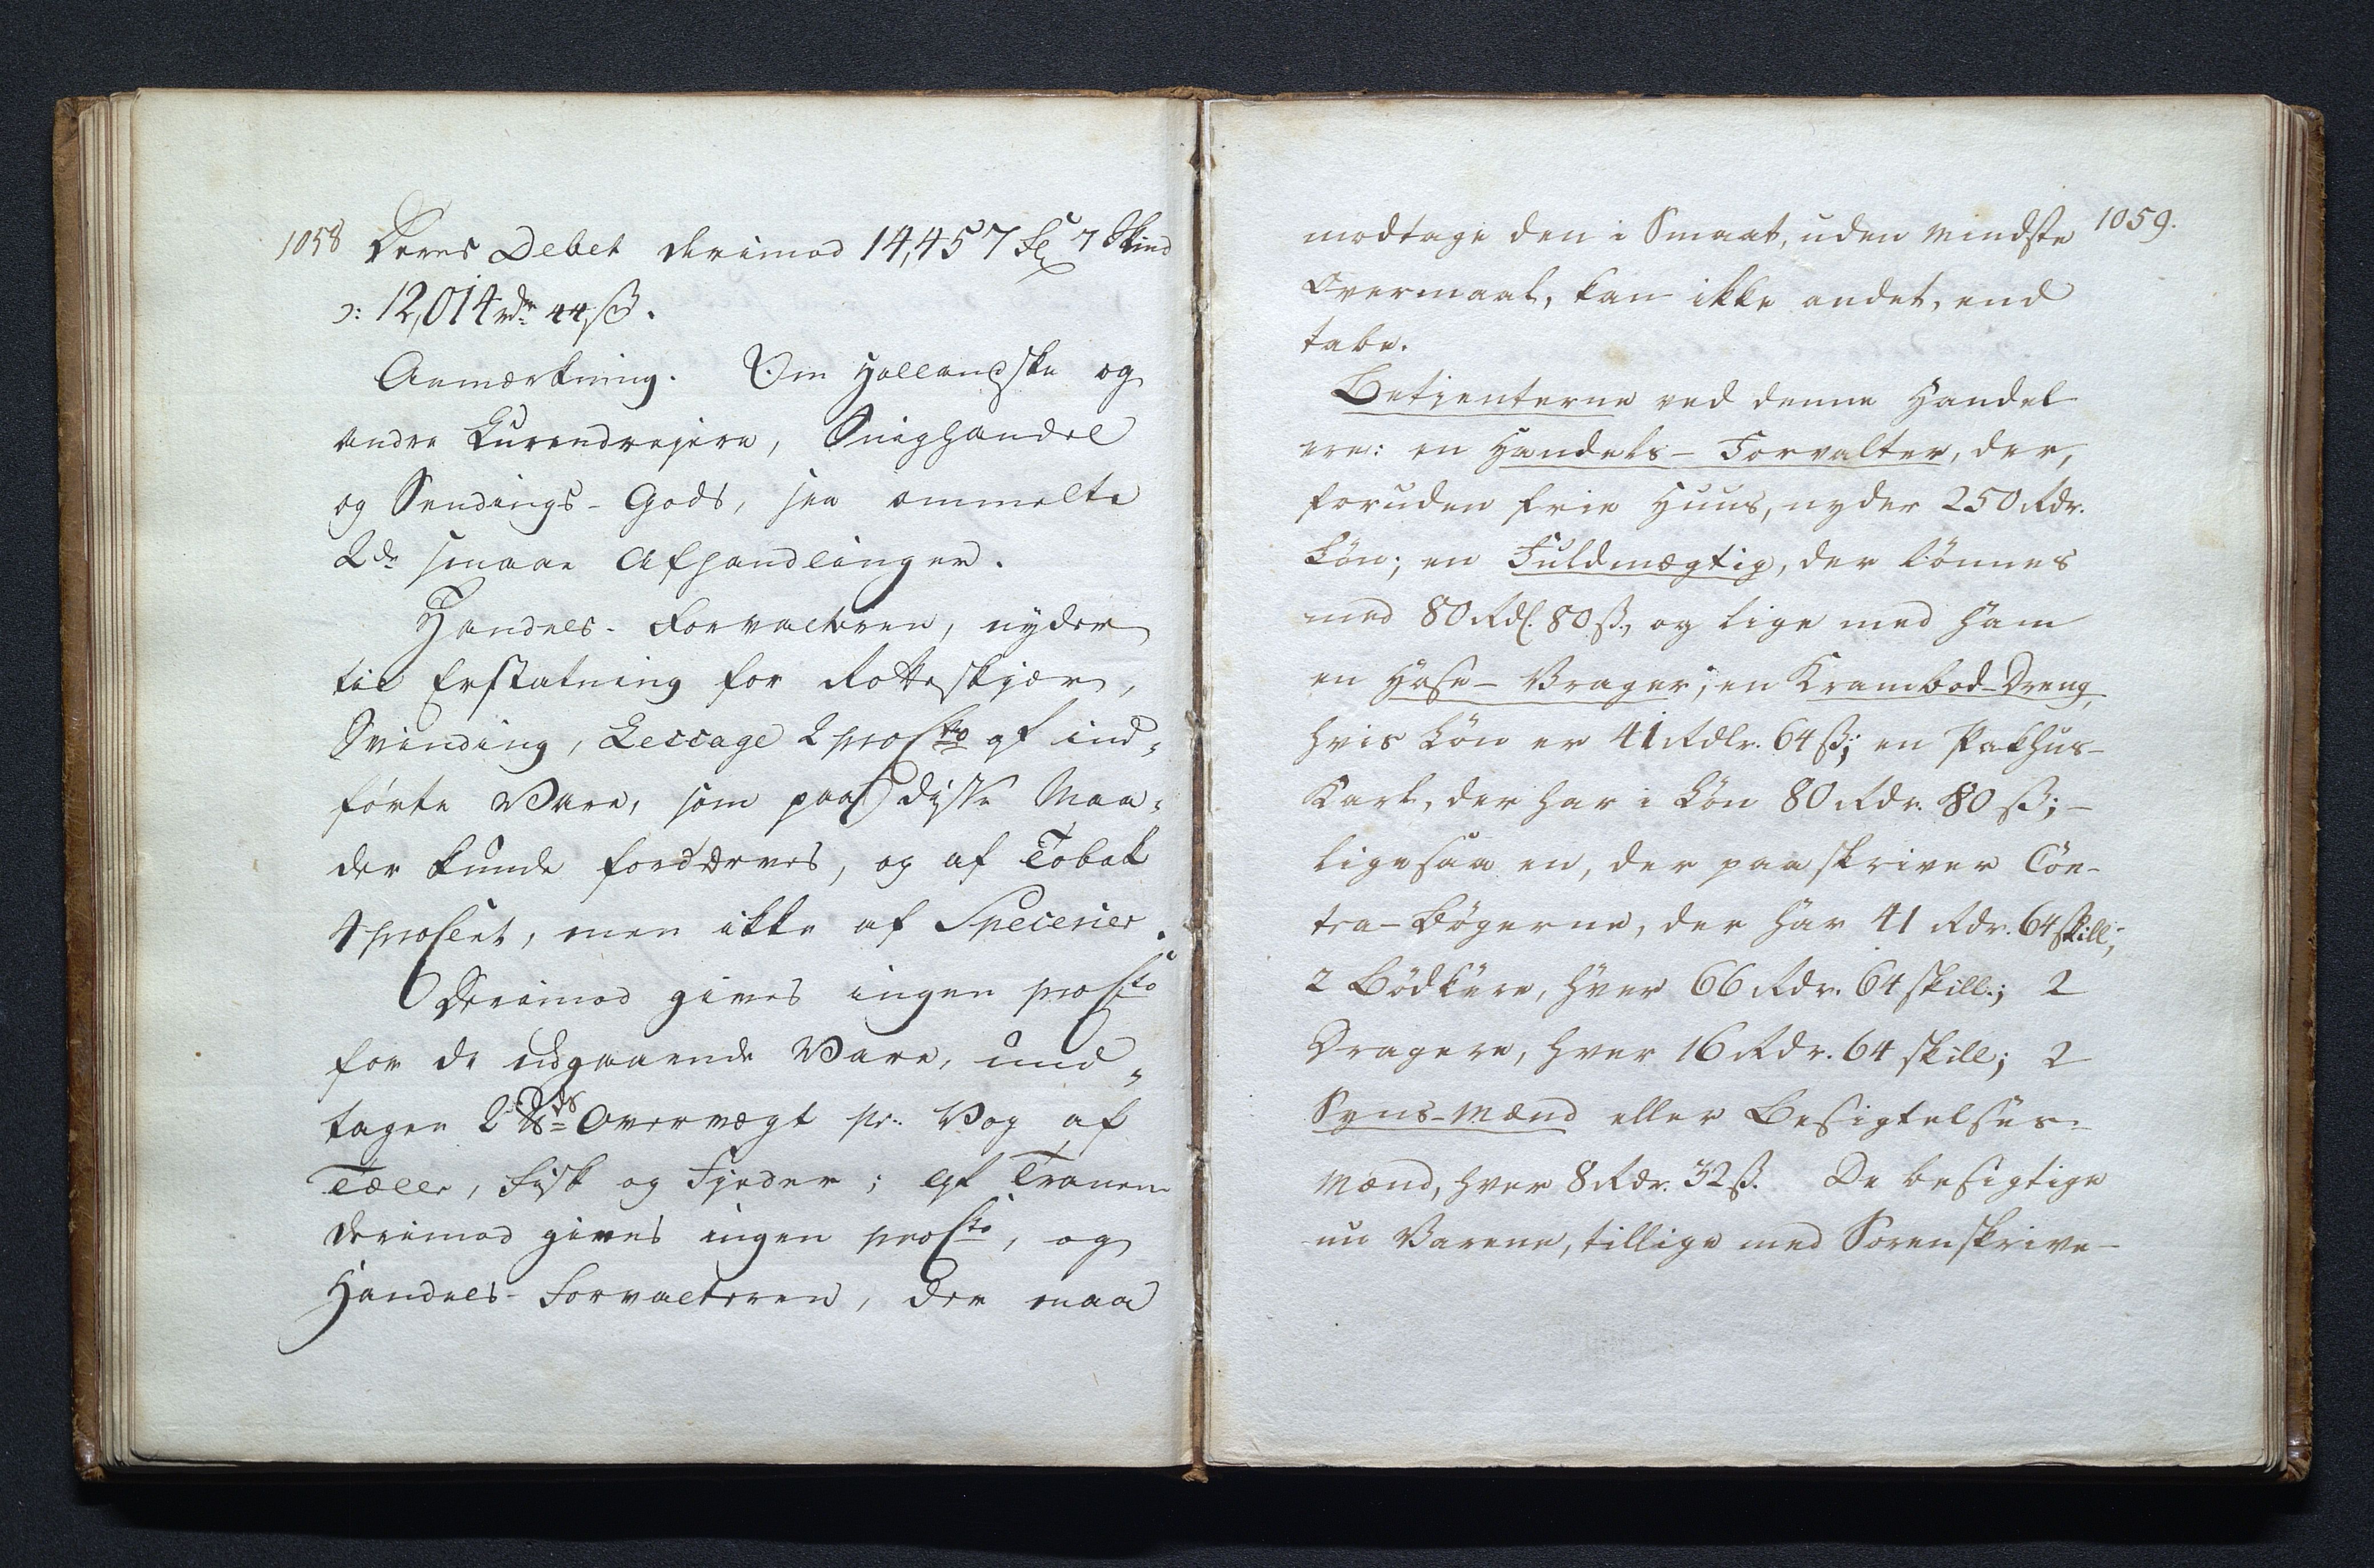 1058 Deres Debet derimod 14,457 Gl 7 Skind
ɔ: 12,014 rdr 44 ß.
Anmærkning. Om Hollandske og
andre Lurendrejere, Snighandel
og Sendings-Gods, see ommelte
2de smaae Afhandlinger.
Handels-Forvalteren, nyder
til Erstatning for Rotteskjær,
Svinding, Leccage 2 proCto af ind-
førte Vare, som paa disse Maa-
der kunde fordærves, og af Tobak
4 proCent, men ikke af Specerier.
Derimod gives ingen proCto
for de udgaaende Vare, und-
tagen 2 ℔ds Overvægt pr. Vog af
Tælle, Fisk og Fjeder; af Tranen
derimod gives ingen proCto, og
Handels-Forvalteren, der maa
1059.
modtage den i Smaat, uden mindste
Overmaal, kan ikke andet, end
tabe.
Betjenterne ved denne Handel
ere: en Handels-Forvalter, der,
foruden frie Huus, nyder 250 Rdr.
Løn; en Fuldmægtig, der lønnes
med 80 Rdl. 80 ß., og lige med ham
en Hose-Vrager; en Krambod-Dreng,
hvis Løn er 41 Rdlr. 64 ß; en Pakhus-
Karl, der har i Løn 80 Rdr. 80 ß; -
ligesaa en, der paaskriver Con-
tra-Bøgerne, der har 41 Rdr. 64 skill;
2 Bødkere, hver 66 Rdr. 64 skill.; 2
Dragere, hver 16 Rdr. 64 skill; 2
Syns-Mænd eller Besigtelses-
Mænd, hver 8 Rdr. 32 ß. De besigtige
nu Varene, tillige med Sorenskrive-